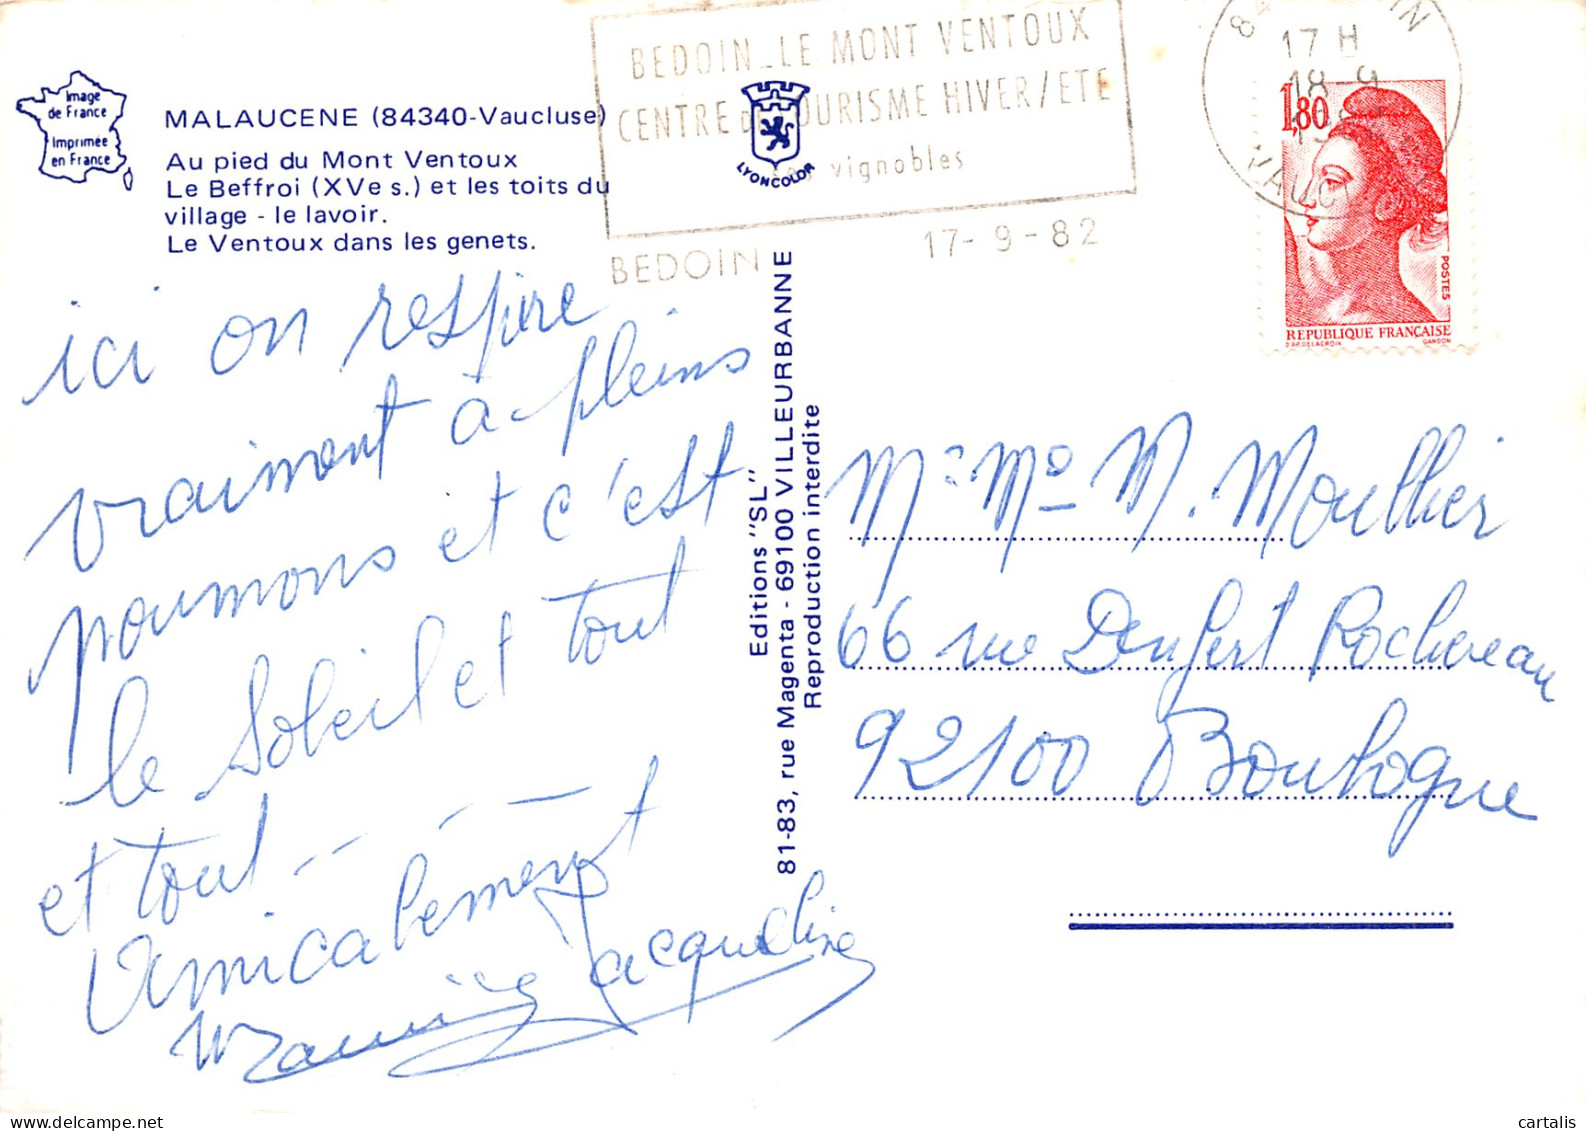 Image
de France
Imprimée
en France
MALAUCENE (84340-Vaucluse)
Au pied du Mont Ventoux
Le Beffroi (XVe s.) et les toits du
village - le lavoir.
Le Ventoux dans les genets.
BEDOIN _ LE MONT VENTOUX
CENTRE DE TOURISME HIVER/ETE
vignobles
BEDOIN
17- 9 - 82
LYONCOLOR
17 H
18 - 9
VAUCL
1,80
POSTES
REPUBLIQUE FRANÇAISE
D'AP. DELACROIX GANDON
ici on respire
vraiment a pleins
poumons et c'est
le Soleil et tout
et tout - - - -
Amicalement
Jacqueline
Editions "SL"
81-83, rue Magenta - 69100 VILLEURBANNE
Reproduction interdite
Mr Me M. Moullier
66 rue Denfert Rochereau
92100 Boulogne
cartalis